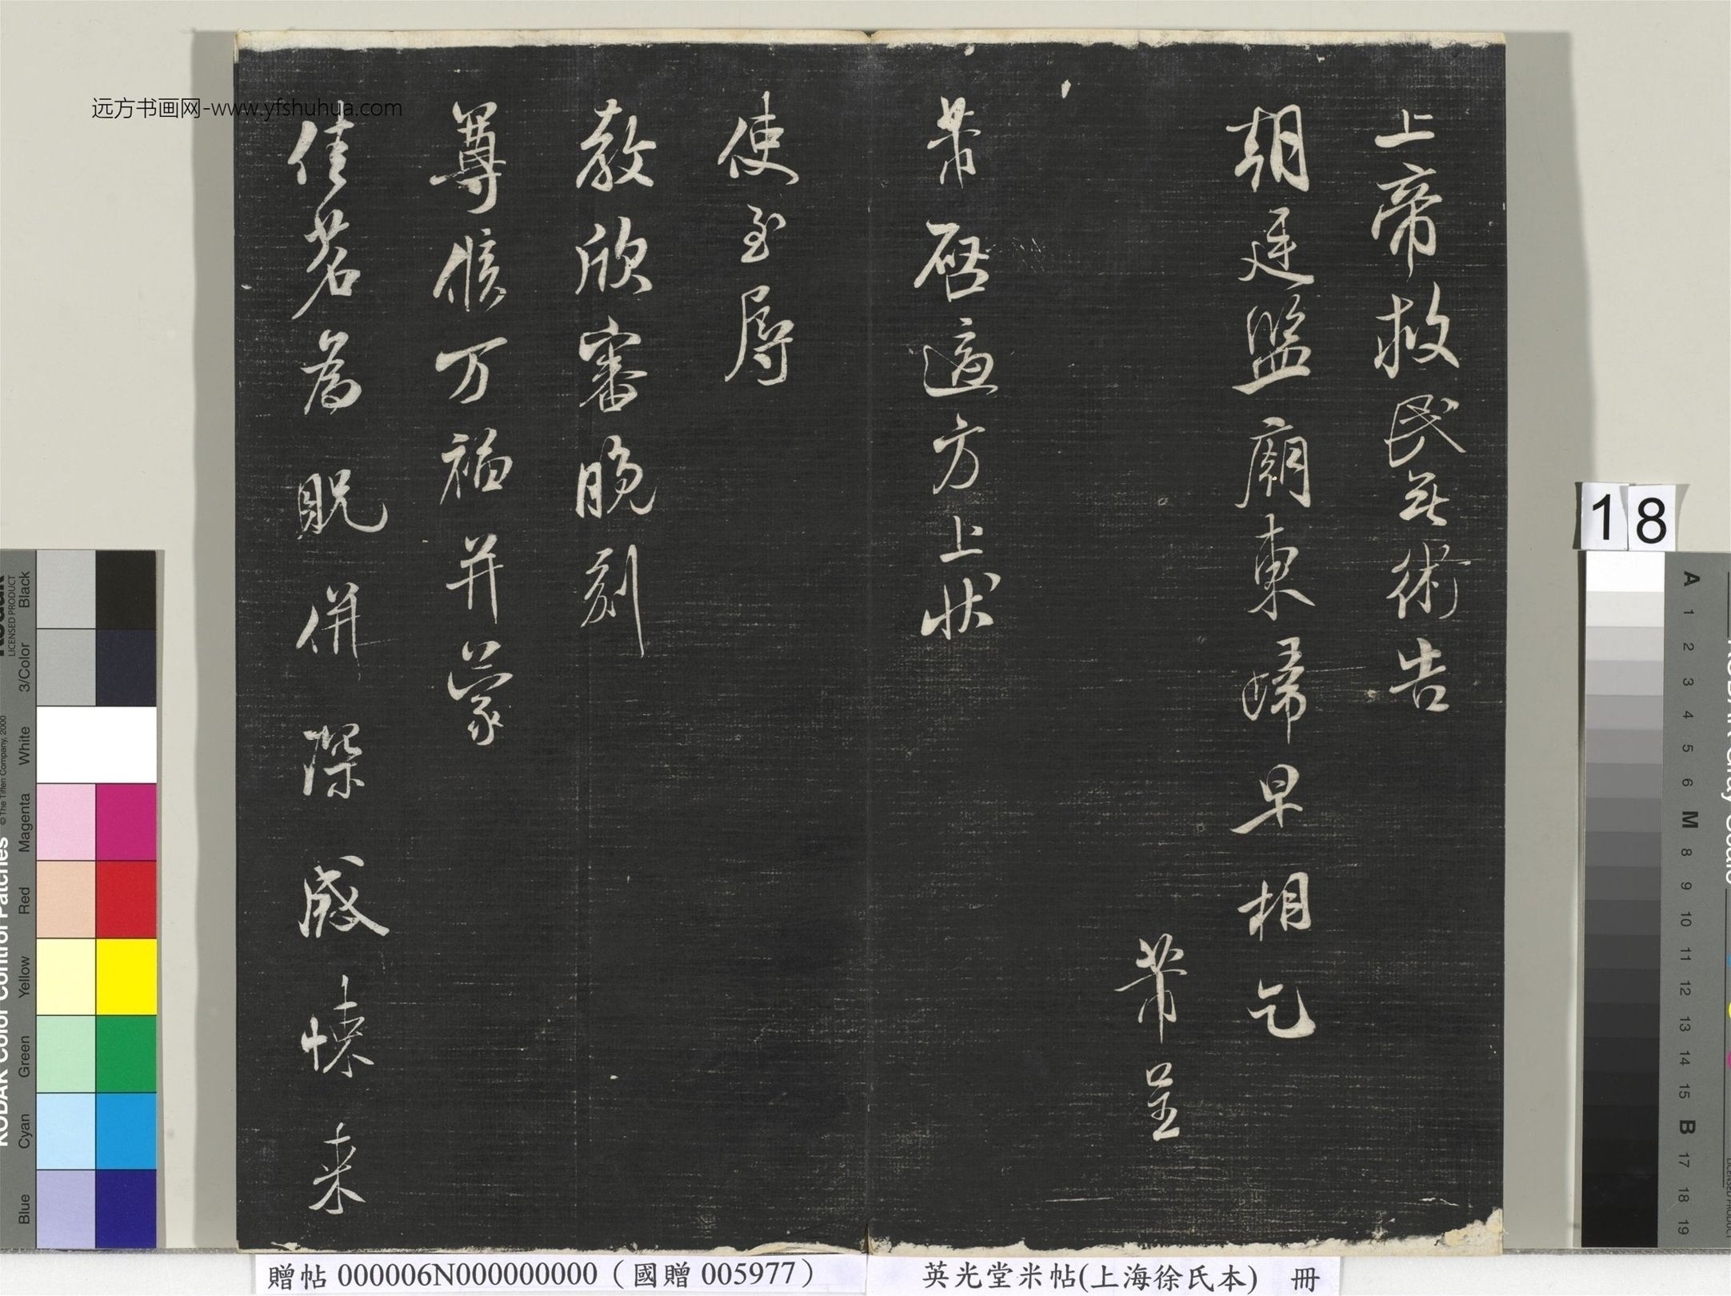 上帝救民無術告
朝廷監廟東歸早相乞
芾呈
芾啓適方上狀
使至辱
教欣審晚刻
尊候万福并蒙
佳茗為貺併深感悚来
远方书画网-www.yfshuhua.com
18
贈帖 000006N000000000（國贈 005977）
英光堂米帖(上海徐氏本) 冊
KODAK Color Control Patches
© The Tiffen Company, 2000
LICENSED PRODUCT
Blue Cyan Green Yellow Red Magenta White 3/Color Black
A 1 2 3 4 5 6 M 8 9 10 11 12 13 14 15 B 17 18 19